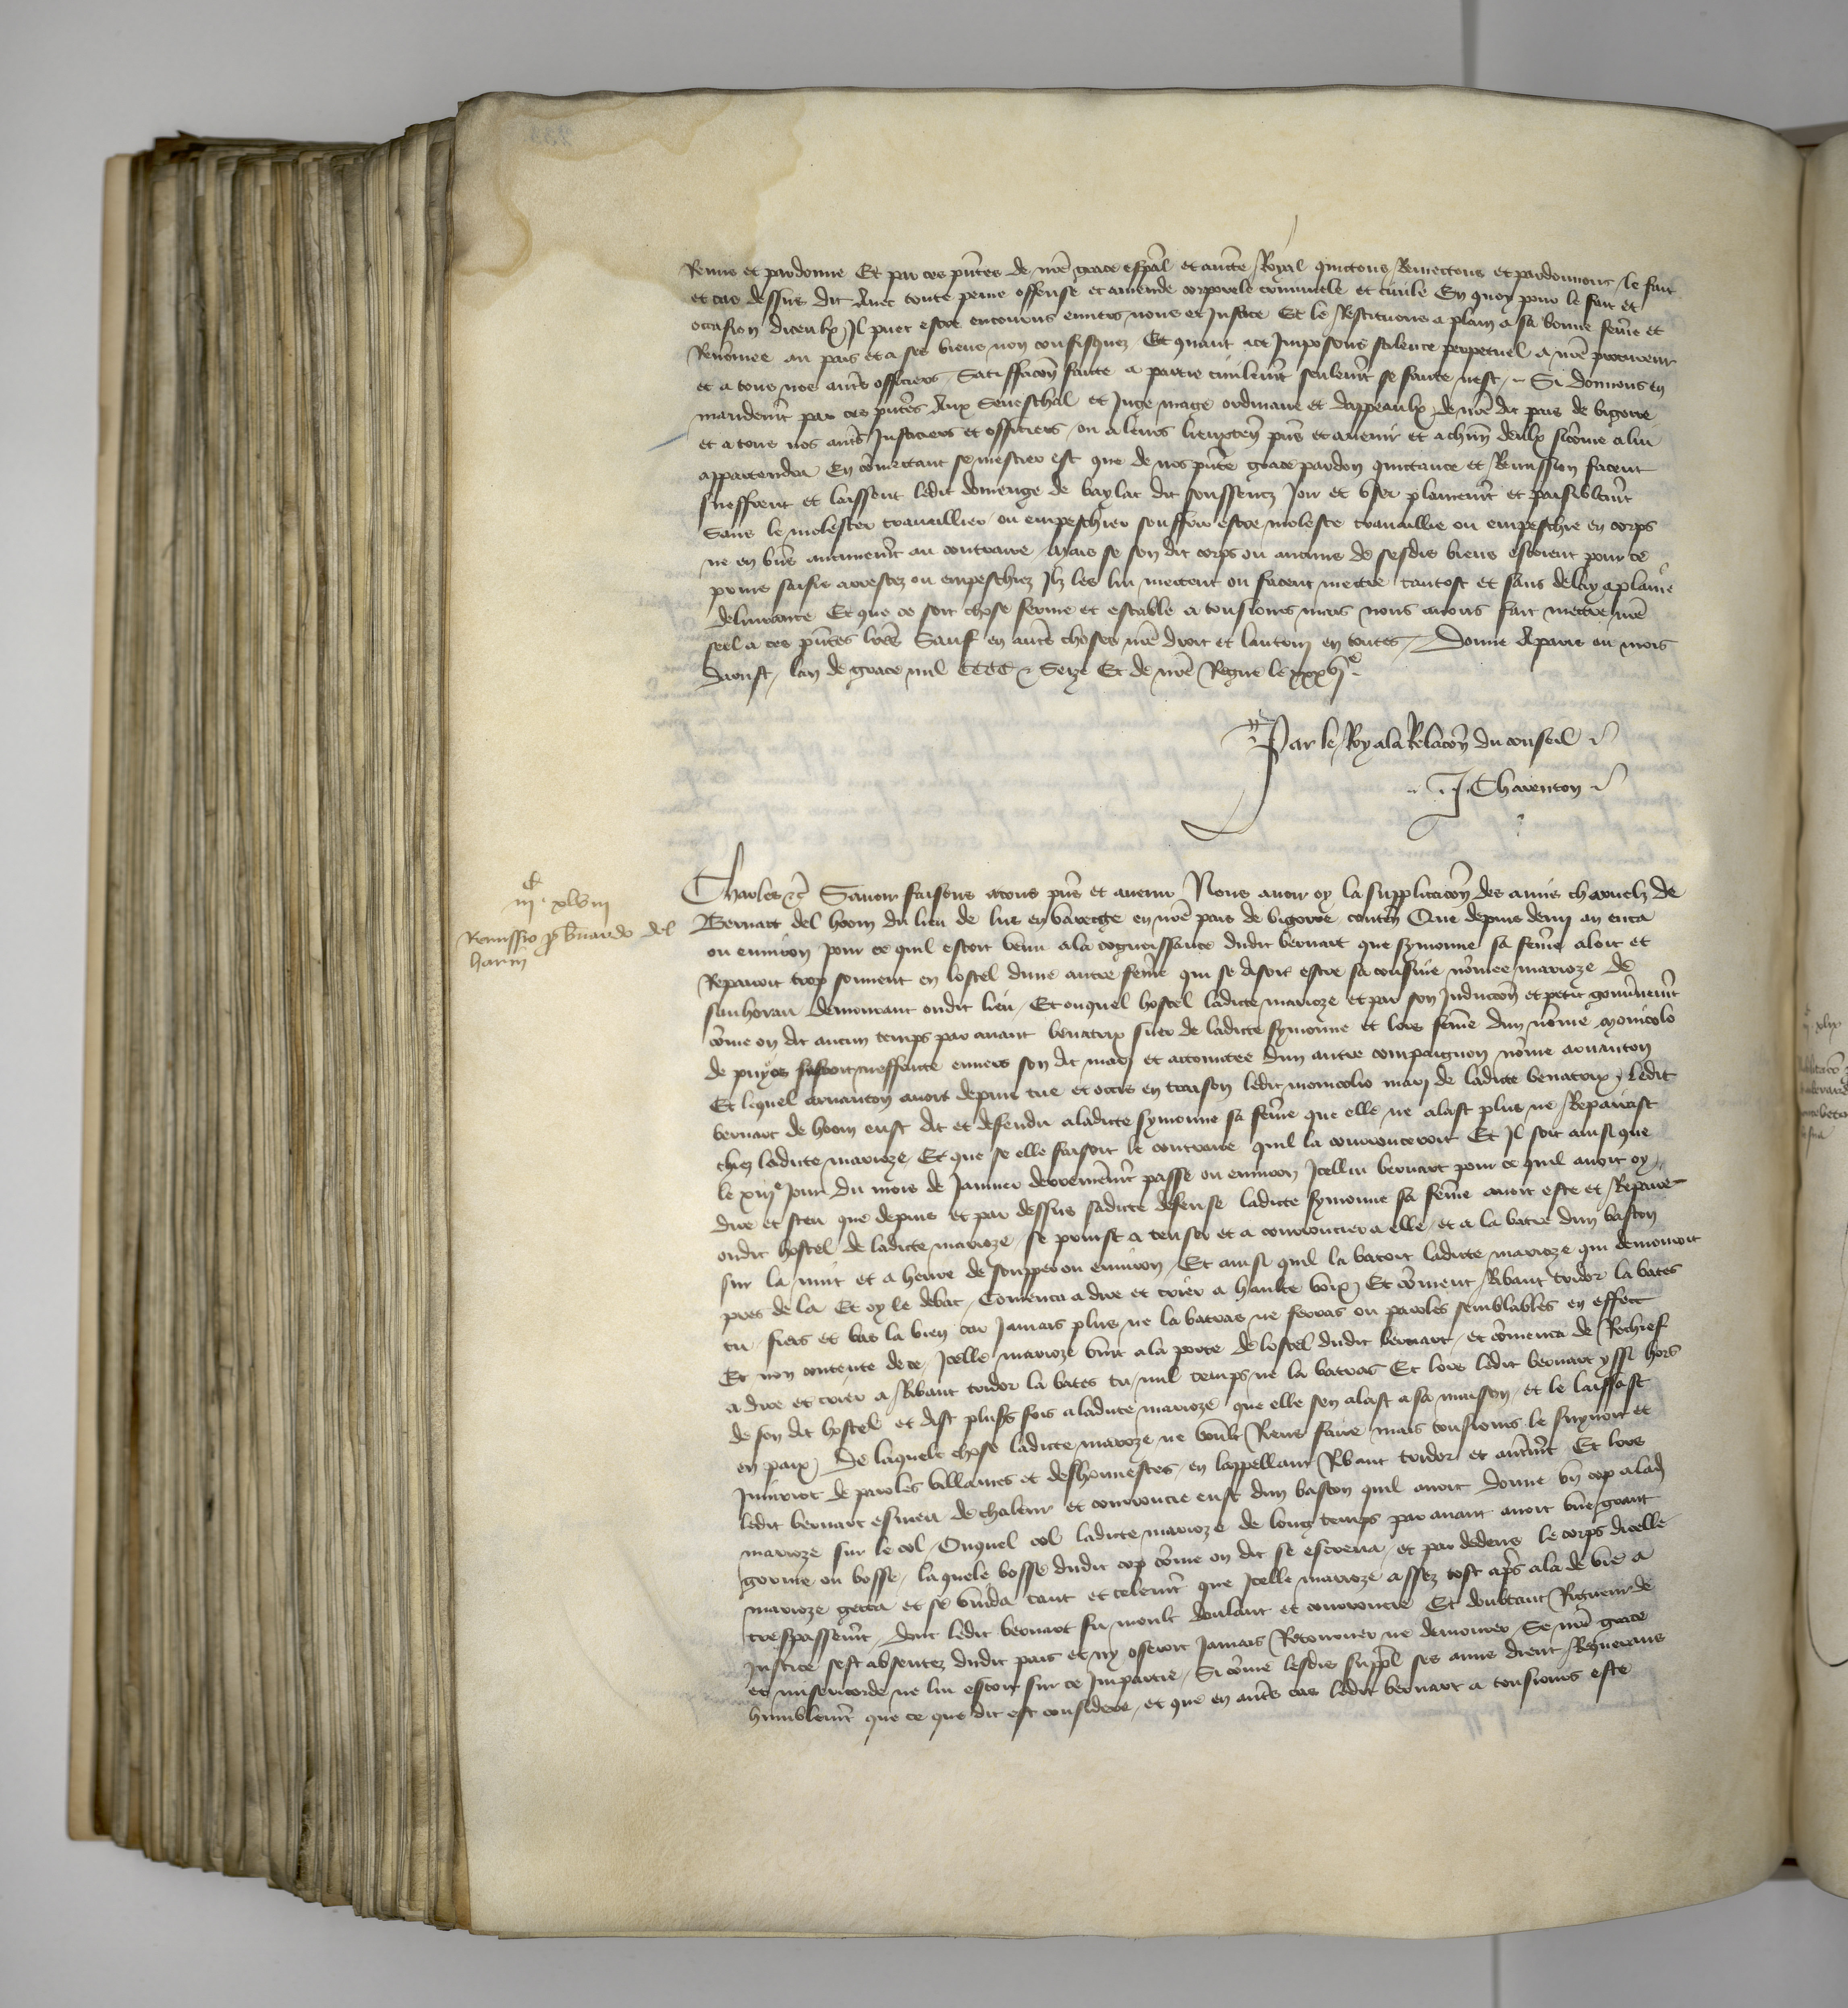 Remis et pardonne Et par ces pñtes de nrẽ grace espãl et aucte Royal quictons Remectons et pardonnons le fait
et cas dessus dit Avec toute peine offense et amende corporele criminele et civile En quoy pour le fait et
occasion diceulx Il puet estre encouru envers nous et Justice Et le Restituons a plain a sa bonne feme et
Renõmee au pais et a ses biens non confisquez Et quant a ce Imposons scilence perpetuel a nrẽ procureur
et a tous nos autrẽs officiers Satisfacõn faicte a partie civilemt seulemt se faicte nest Si donnons en
mandemt par ces pñtes Aux Seneschal et Juge mage ordinaire et dappeaulx de nrẽ dit pais de bigorre
et a tous nos autrẽs Justiciers et officiers ou a leurs lieuxtenˢ pñs et avenir et a chũn deulx sicõme a lui
appartendra En cõmectant se mestier est que de nos pñte grace pardon quictance et Remission facent
sueffrent et laissent ledit domenge de baylac dit soussentz Joir et user plainemt et paisiblemt
Sans le molester travaillier ou empeschier souffrir estre moleste travaillie ou empeschie en corps
ne en biẽs aucunemt au contraire Mais se son dit corps ou aucuns de sesdis biens estoient pour ce
prins saisis arrestez ou empeschiez Ilz les lui mectent ou facent mectre tantost et sans delay a plaine
delivrance Et que ce soit chose ferme et estable a tousiours mais nous avons fait mectre nrẽ
seel a ces pñtes lrẽs Sauf en autrẽs choses nrẽ droit et lautruy en toutes Donne A paris ou mois
daoust lan de grace mil CCCC Seize Et de nrẽ Regne le xxxvjᵉ
Par le Roy a la Relacõn du conseil
J. Charenton
iijᶜ xlviij
Remissio p bñardo del
harm
Charles &c Savoir faisons a tous pñs et avenir Nous avoir oy la supplicacõn des amis charnelz de
Bernart del hoom du lieu de luz en barege en nrẽ pais de bigorre conteñ Que depuis demi an enca
ou environ pour ce quil estoit venu a la cognoissance dudit bernart que symonne sa feme aloit et
Repairoit trop souvent en lostel dune autre feme qui se disoit estre sa cousine nõmee marioze de
sanhoran demourant oudit lieu Et ouquel hostel ladicte marioze et par son Induccõn et petit gouvernemt
cõme on dit aucun temps par avant benatrix suer de ladicte symonne et lors feme dun nõme monicolo
de puyos sestoit meffaicte envers son dit mary et accointee dun autre compaignon nõme arnanton
Et lequel arnanton avoit depuis tue et occis en traison ledit monicolo mary de ladicte benatrix ledit
bernart de hoom eust dit et defendu a ladicte symonne sa feme que elle ne alast plus ne Repairast
chez ladicte marioze Et que se elle faisoit le contraire quil la courrouceroit Et Il soit ainsi que
le xiijᵉ Jour du mois de Janvier derrenieremt passe ou environ Icellui bernart pour ce quil avoit oy
dire et sceu que depuis et par dessus sadicte defense ladicte symonne sa feme avoit este et Repaire
oudit hostel de ladicte marioze se prinst a tenser et a courroucier a elle et a la batre dun baston
sur la nuit et a heure de soupper ou environ Et ainsi quil la batoit ladicte marioze qui demouroit
pres de la Et oy le debat Comenca a dire et crier a haulte voix Et cõment Ribaut traidor la bates
tu fiers et bas la bien car Jamais plus ne la batras ne ferras ou paroles semblables en effect
Et non contente de ce Icelle marioze vint a la porte de lostel dudit bernart et cõmenca de Rechief
a dire et crier a Ribaut traidor la bates tu nul temps ne la batras Et lors ledit bernart yssi hors
de son dit hostel et dist plusrs fois a ladicte marioze que elle sen alast a sa maison et le laissast
en paix De laquele chose ladicte marioze ne voult Riens faire mais tousiours le suyvoit et
Iniurioit de paroles villaines et deshonnestes en lappellant Ribaut traidor et autremt Et lors
ledit bernart esmeu de chaleur et courroucie eust dun baston quil avoit donne un cop a lad
marioze sur le col Ouquel col ladicte marioze de long temps par avant avoit une grant
gorme ou bosse laquele bosse dudit cop cõme on dit se escreva et par dedens le corps dicelle
marioze getta et se vuida tant et telemt que Icelle marioze assez tost apˢ ala de vie a
trespassemt dont ledit bernart fu moult doulant et courroucie Et doubtant Rigueur de
Justice sest absentez dudit pais et ny oseroit Jamais Retourner ne demourer Se nrẽ grace
et misericorde ne lui estoit sur ce Impartie Si cõme lesdis suppl ses amis dient Requerans
humblemt que ce que dit est considere et que en autrẽs cas ledit bernart a tousiours este